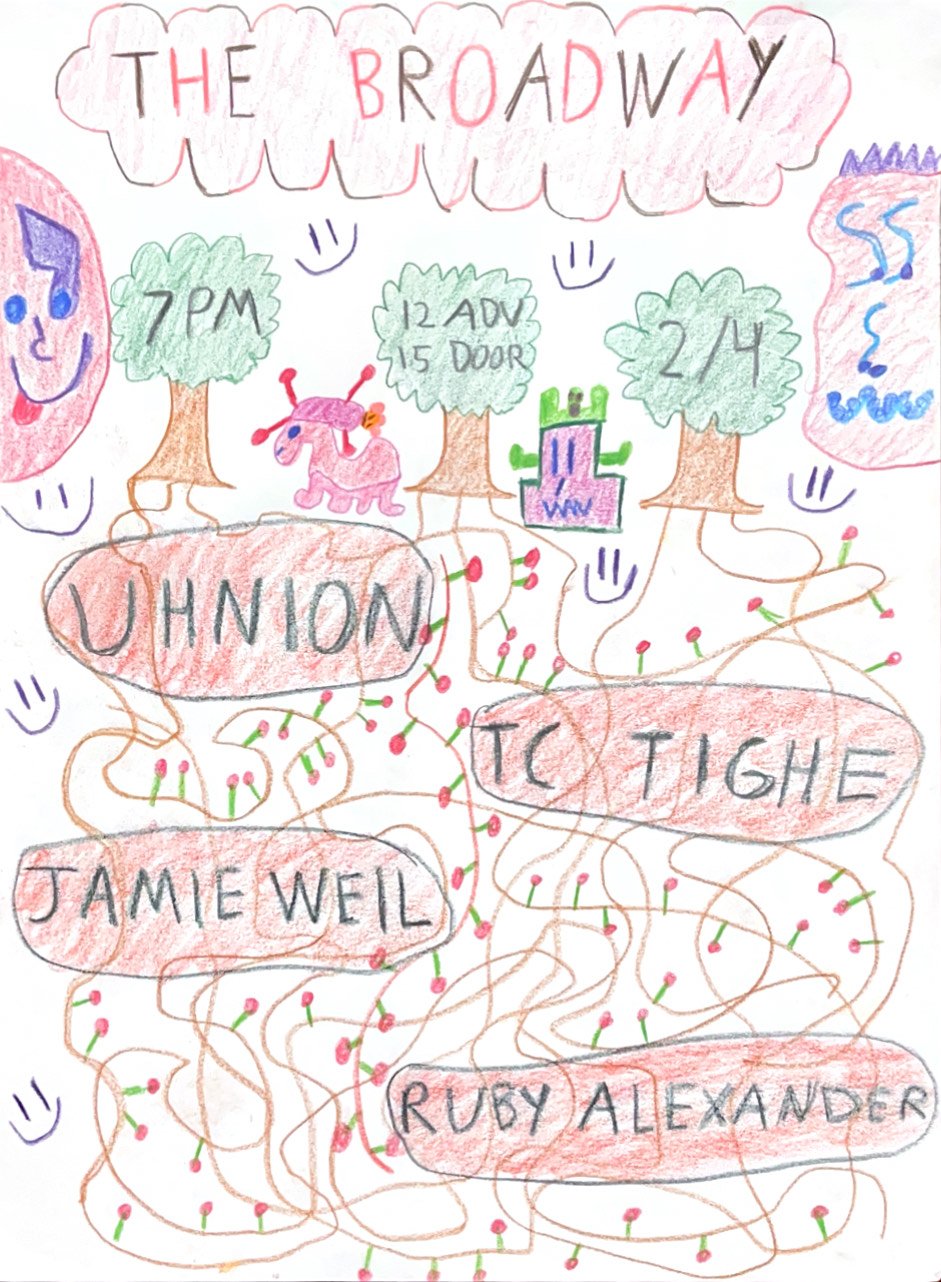 THE BROADWAY
7PM
12 ADV
15 DOOR
2/4
UHNION
TC TIGHE
JAMIE WEIL
RUBY ALEXANDER